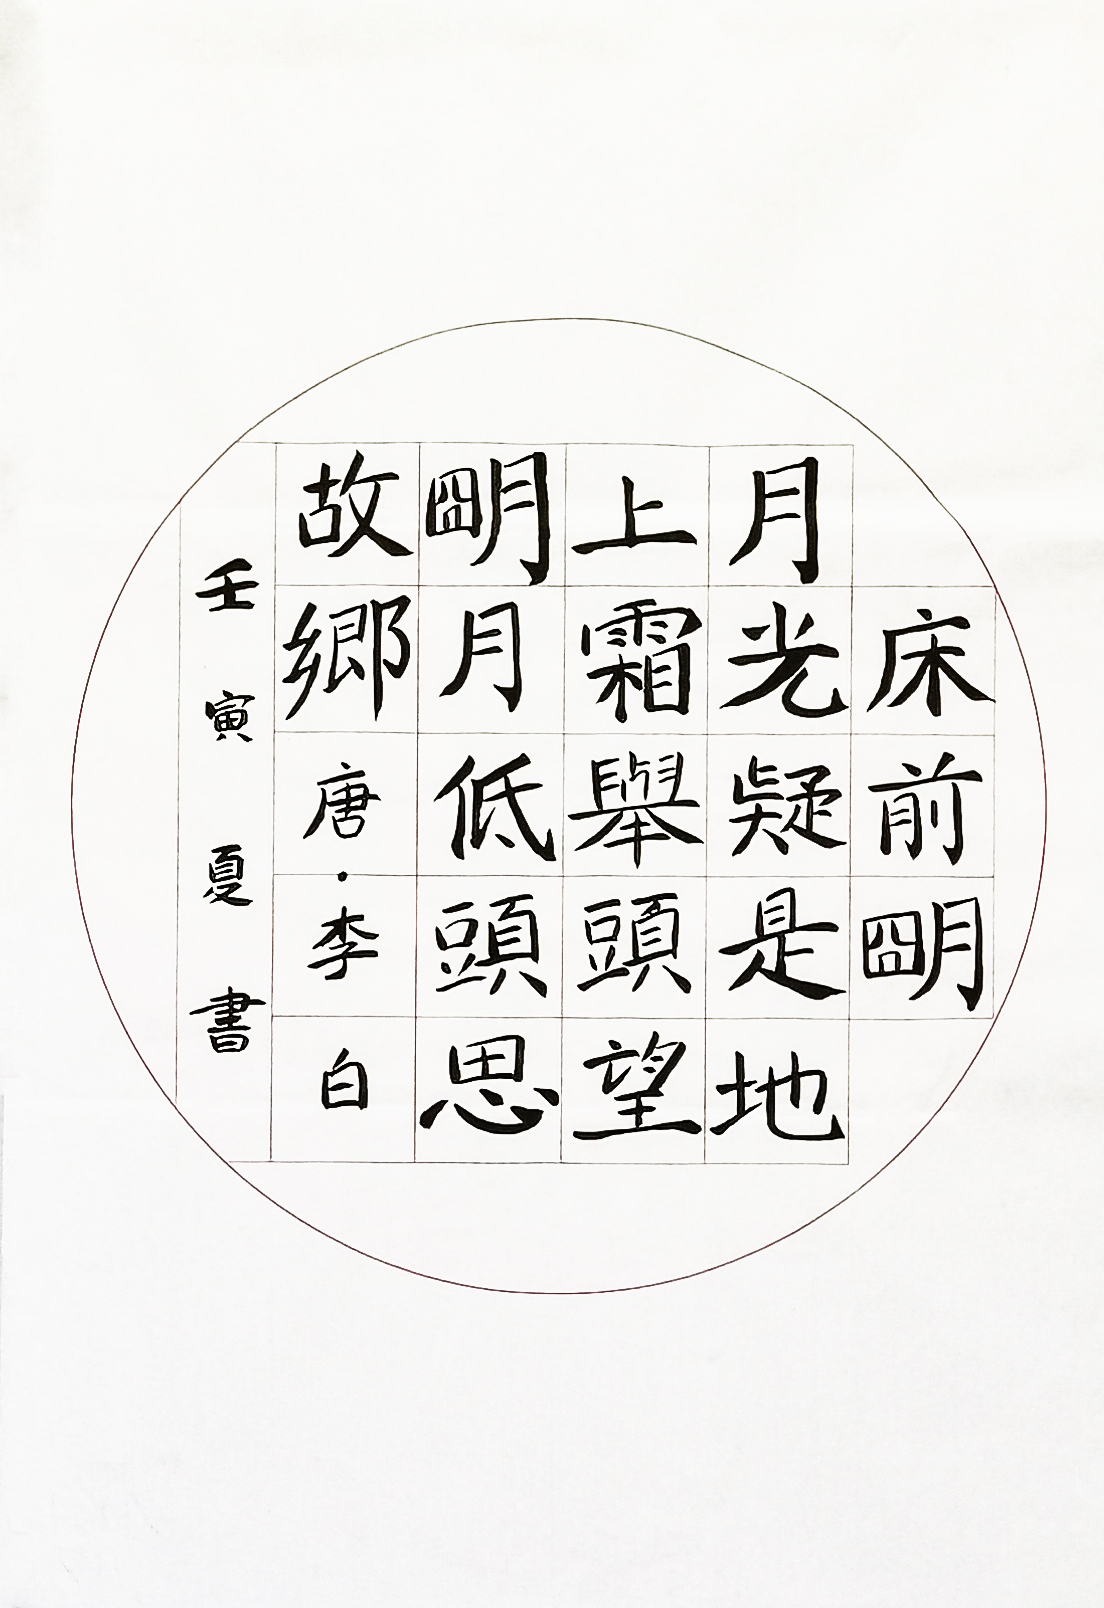 床前朙
月光疑是地
上霜舉頭望
朙月低頭思
故鄉唐·李白
壬寅夏書